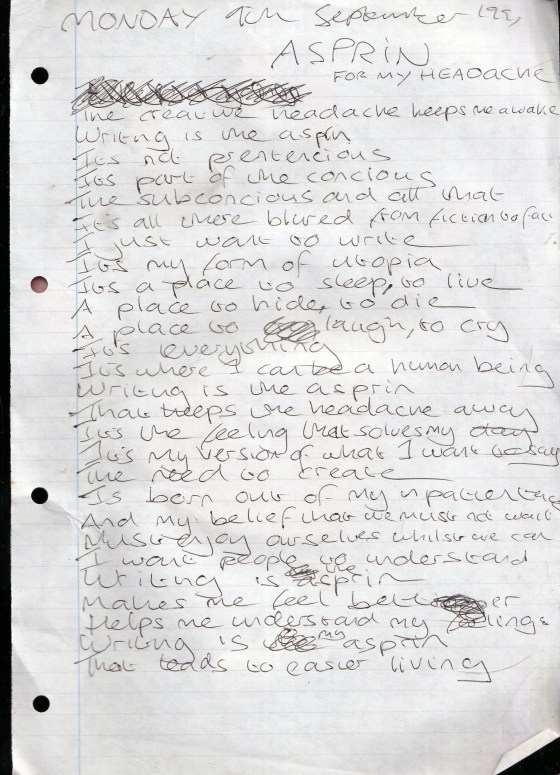 MONDAY 9th September 1991
ASPRIN
FOR MY HEADACHE
The creative headache keeps me awake
Writng is the asprin
Its not prentencious
Its part of the concious
The subconcious and all that
It's all there blured from fiction to fact
I just want to write
It's my form of utopia
Its a place to sleep, to live
A place to hide, to die
A place to laugh, to cry
It's everything
It's where I can be a human being
Writing is the asprin
That keeps the headache away
It's the feeling that solves my day
It's my version of what I want to say
The need to create
Is born out of my npatientce
And my belief that we must not wait
Must enjoy ourselves whilst we can
I want people to understand
Writing is the asprin
Makes me feel better
Helps me understand my feelings
Writing is my asprin
That leads to easier living